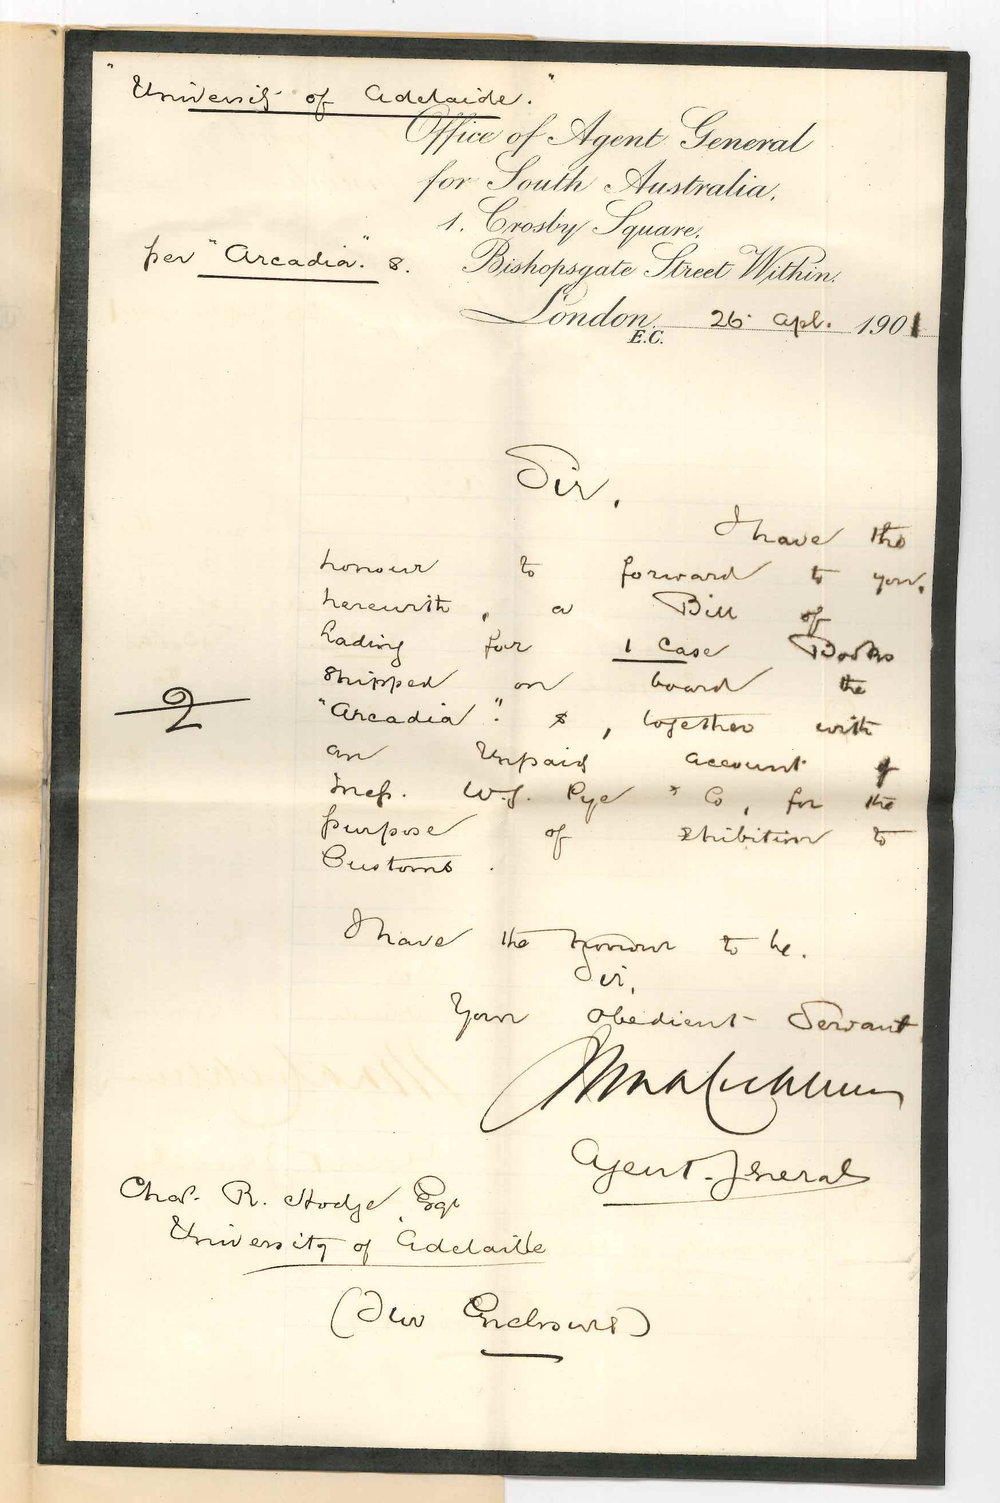 "University of Adelaide."
Office of Agent General
for South Australia,
1. Crosby Square,
per "Arcadia." s.
Bishopsgate Street Within.
London, 26 Apl. 1901
E.C.
Sir,
I have the
honour to forward to you,
herewith, a Bill of
Lading for 1 Case Books
shipped on board the
2
"Arcadia" s, together with
an Unpaid account of
Mess. W. J. Pye & Co, for the
purpose of exhibition to
Customs.
I have the honour to be.
Sir,
Your obedient Servant
Agent-General
Chas. R. Hodge, Esqe
University of Adelaide
(Two Enclosures)